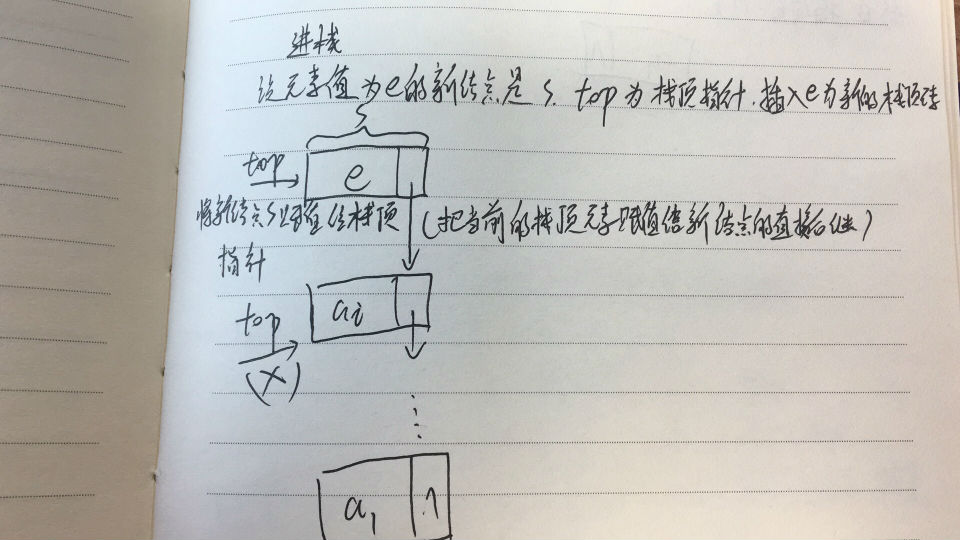 进栈
设元素值为e的新结点是s，top为栈顶指针，插入e为新的栈顶元素
s
top
e
将新结点s赋值给栈顶
指针
(把当前的栈顶元素赋值给新结点的直接后继)
ai
top
(×)
⋮
a1 ∧